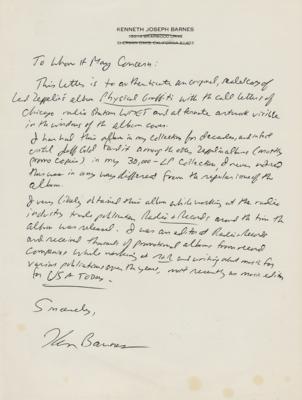 KENNETH JOSEPH BARNES
SHERMAN OAKS, CALIFORNIA 91423
To Whom It May Concern:
This letter is to authenticate an original, sealed copy of
Led Zeppelin's album Physical Graffiti with the call letters of
Chicago radio station and alternate artwork visible
in the windows of the album cover.
I have had this album in my collection for decades, and in fact
until found it among the other Zeppelin albums (mostly
promo copies) in my 30,000-LP collection I never noticed
this was in any way different from the regular issue of the
album.
I very likely obtained this album while working at the radio
industry trade publication Radio & Records around the time the
album was released. I was an editor at Radio & Records
and received thousands of promotional albums from record
companies while working at R&R and writing about music for
various publications over the years, most recently as music editor
for USA TODAY.
Sincerely,
Ken Barnes